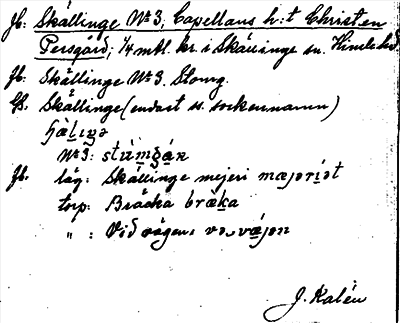 Jb: Skällinge Nr 3, Capellans h:t Christen
Persgård, 1/4 mtl. kr i Skällinge sn. Himle hd
Jb: Skällinge Nr 3. Stomg.
Gk. Skällinge (endast ss. sockennamn)
Nr 3: stúmgáɴ
Jb. läg: Skällinge mejeri mæjəríət
torp: Bräcka bræka
" : Vid vägen: və vǽjən
J. Kalén